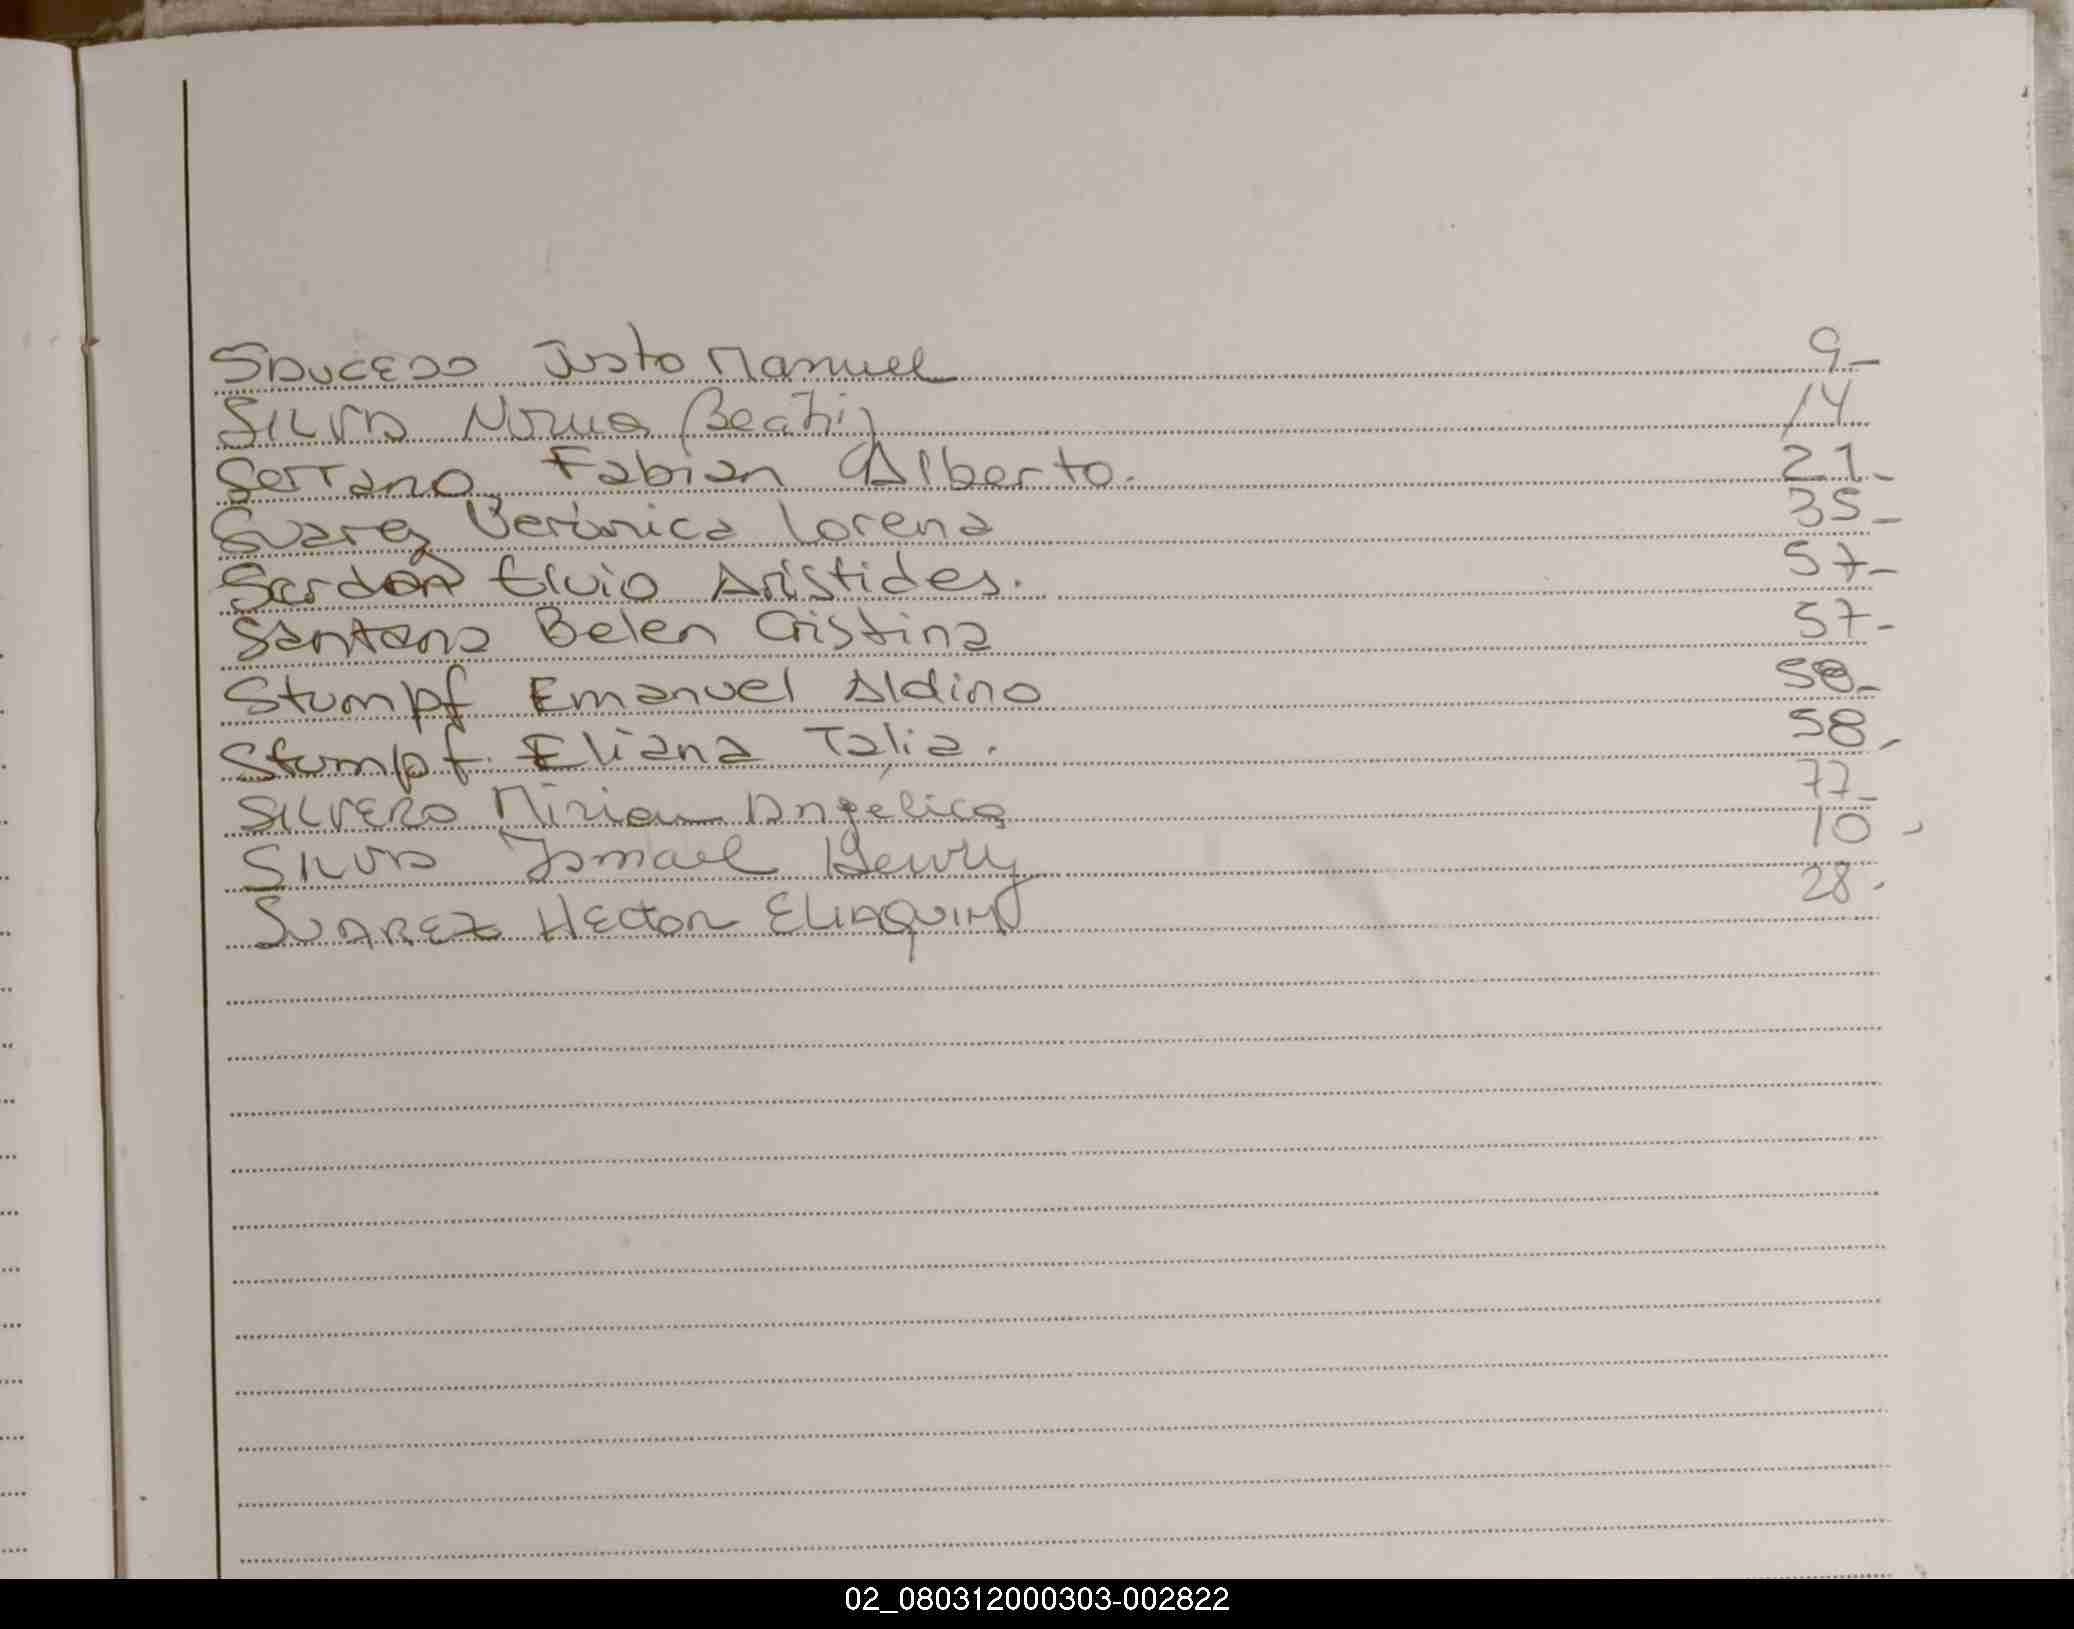 SAUCEDO Justo Manuel 9-
SILVA Norma Beatriz 14
Serrano, Fabian Alberto. 21-
Suarez Verónica Lorena 35-
Sardon Elvio Aristides. 57-
Santana Belen Cristina 57-
Stumpf Emanuel Aldino 58-
Stumpf. Eliana Talia. 58-
SILVERO Miriam Angelica 77-
SILVA Ismael Henry 10-
SUAREZ HECTOR ELIAQUIM 28.
02_080312000303-002822